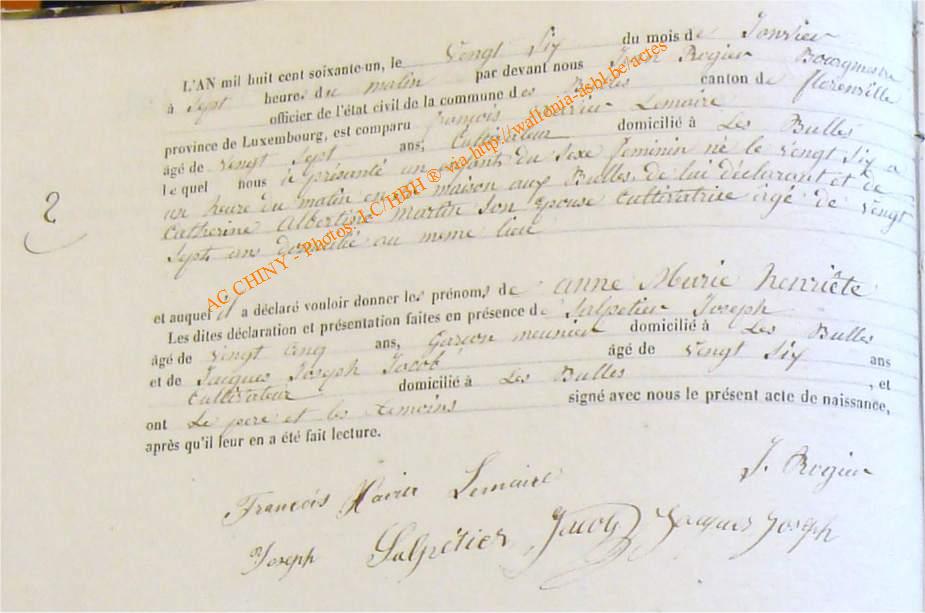 L'AN mil huit cent soixante-un, le Vingt Six du mois de Janvier
à Sept heures du matin par devant nous Jean Rogier Bourgmestre
officier de l'état civil de la commune des Bulles canton de florenville
province de Luxembourg, est comparu françois Xavier Lemaire
âgé de Vingt Sept ans, Cultivateur domicilié à Les Bulles
lequel nous à présenté un enfant du Sexe feminin né le Vingt Six a
un heure du matin en sa maison aux Bulles de lui déclarant et de
Catherine Albertine Martin Son épouse Cultivatrice âgé de Vingt
Sept ans domicilié au meme lieu
2
et auquel il a déclaré vouloir donner les prénoms de anne Marie henriéte
Les dites déclaration et présentation faites en présence de Salpetier Joseph
âgé de Vingt Cinq ans, Garçon meunier domicilié à Les Bulles
et de Jacques Joseph Jacob âgé de Vingt Six ans
Cultivateur domicilié à Les Bulles , et
ont Le pere et les temoins signé avec nous le présent acte de naissance,
après qu'il leur en a été fait lecture.
François Xavier Lemaire J. Rogier
Joseph Salpétier Jacob Jacques Joseph
AG CHINY - Photos: LC/HBH ® via http://wallonia-asbl.be/actes